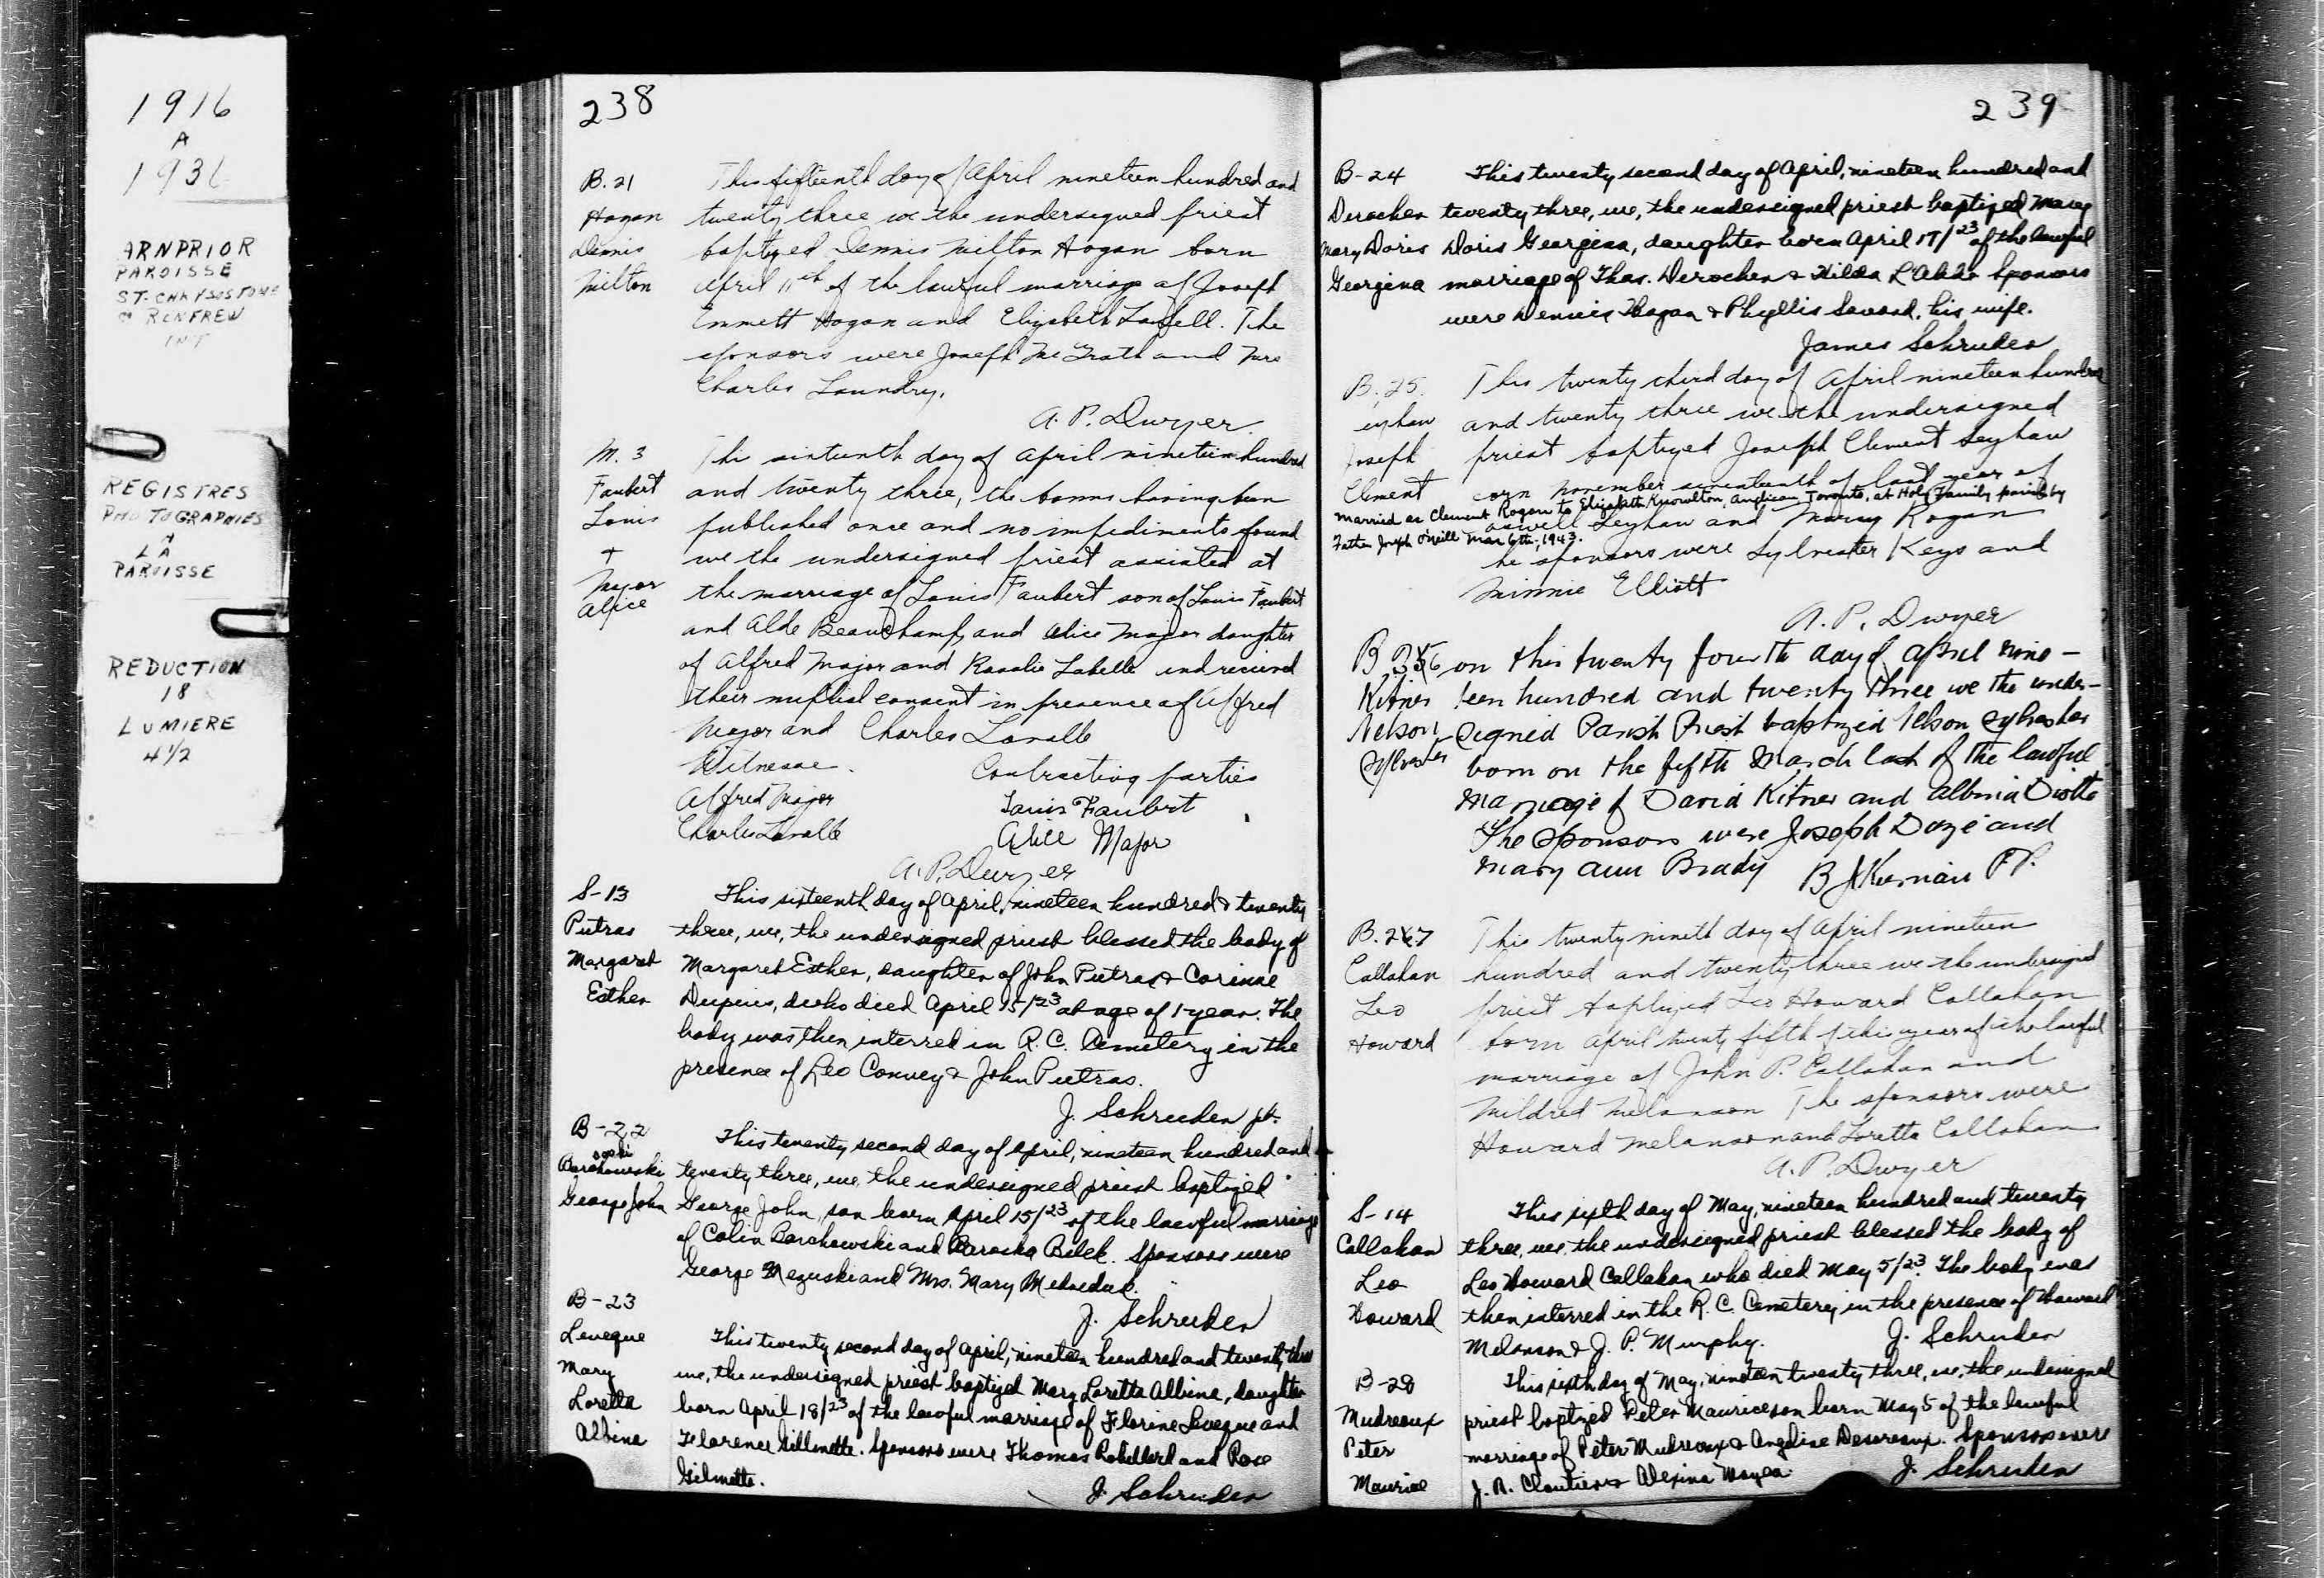 1916
A
1936
ARNPRIOR
PAROISSE
ST-CHRYSOSTOME
RENFREW
REGISTRES
PHOTOGRAPHIES
A
LA
PAROISSE
REDUCTION
18
LUMIERE
4 1/2
238
B. 21
Hogan
Dennis
Milton
This fifteenth day of April nineteen hundred and
twenty three we the undersigned priest
baptized Dennis Milton Hogan born
April 11th of the lawful marriage of Joseph
Emmett Hogan and Elizabeth Lavell. The
sponsors were Joseph Mc Grath and Mrs
Charles Laundry.
A. P. Dwyer
M. 3
Faubert
Louis
+
Major
Alice
The sixteenth day of April nineteen hundred
and twenty three, the banns having been
published once and no impediments found
we the undersigned priest assisted at
the marriage of Louis Faubert son of Louis Faubert
and Alde Beauchamp, and Alice Major daughter
of Alfred Major and Rosalie Labelle and received
their nuptial consent in presence of Alfred
Major and Charles Lavalle
Witnesse. Contracting parties
Alfred Major Louis Faubert
Charles Lavalle Alice Major
A. P. Dwyer
S-13
Putras
Margaret
Esther
This sixteenth day of April, nineteen hundred & twenty
three, we, the undersigned priest blessed the body of
Margaret Esther, daughter of John Putras & Corinne
Dupuis, who died April 15/23 at age of 1 year. The
body was then interred in R. C. Cemetery in the
presence of Leo Convey & John Putras.
J. Schruder pt.
B-22
Barchowski
George John
This twenty second day of April, nineteen hundred and
twenty three, we, the undersigned priest baptized
George John, son born April 15/23 of the lawful marriage
of Colin Barchowski and Bilek. Sponsors were
George and Mrs. Mary
J. Schruder
B-23
Leveque
Mary
Loretta
Albina
This twenty second day of April, nineteen hundred and twenty three
we, the undersigned priest baptized Mary Loretta Albina, daughter
born April 18/23 of the lawful marriage of Florine Leveque and
Florence Gillmette. Sponsors were Thomas Robillard and Rose
Gilmette.
J. Schruder
239
B-24
Derocher
Mary Doris
Georgina
This twenty second day of April, nineteen hundred and
twenty three, we, the undersigned priest baptized Mary
Doris Georgina, daughter born April 17/23 of the lawful
marriage of Thos. Derocher & Hilda L'Abbe Sponsors
were Dennis Hogan & Phyllis Savard, his wife.
James Schruder
B. 25.
eyhaw
Joseph
Clement
This twenty third day of April nineteen hundred
and twenty three we the undersigned
priest baptized Joseph Clement Leyhaw
orn November seventeenth of last year of
married as Clement Rogan to Elizabeth Knowlton, Anglican, Toronto, at Holy Family parish by
Father Joseph O'Neill Mar 6th, 1943.
Leyhaw and Mary Rogan
he sponsors were Sylvester Keys and
Minnie Elliott
A. P. Dwyer
B 26
Kitner
Nelson
Sylvester
on this twenty fourth day of April nine-
teen hundred and twenty three we the under-
signed Parish Priest baptized Nelson Sylvester
born on the fifth March last of the lawful
Marriage of David Kitner and Albina Diotte
The Sponsors were Joseph Dozé and
Mary Ann Brady B J Kiernan P.P.
B. 27
Callahan
Leo
Howard
This twenty ninth day of April nineteen
hundred and twenty three we the undersigned
priest baptized Leo Howard Callahan
born April twenty fifth of this year of the lawful
marriage of John P. Callahan and
Mildred Melanson The sponsors were
Howard Melanson and Loretta Callahan
A. P. Dwyer
S-14
Callahan
Leo
Howard
This sixth day of May, nineteen hundred and twenty
three, we, the undersigned priest blessed the body of
Leo Howard Callahan who died May 5/23. The body was
then interred in the R. C. Cemetery in the presence of Howard
Melanson & J. P. Murphy. J. Schruder
B-28
Mudreaux
Peter
Maurice
This sixth day of May, nineteen twenty three, we, the undersigned
priest baptized Peter Maurice son born May 5 of the lawful
marriage of Peter Mudreaux & Angeline Desereaux. Sponsors were
J. R. Cloutier & Alexina
J. Schruder